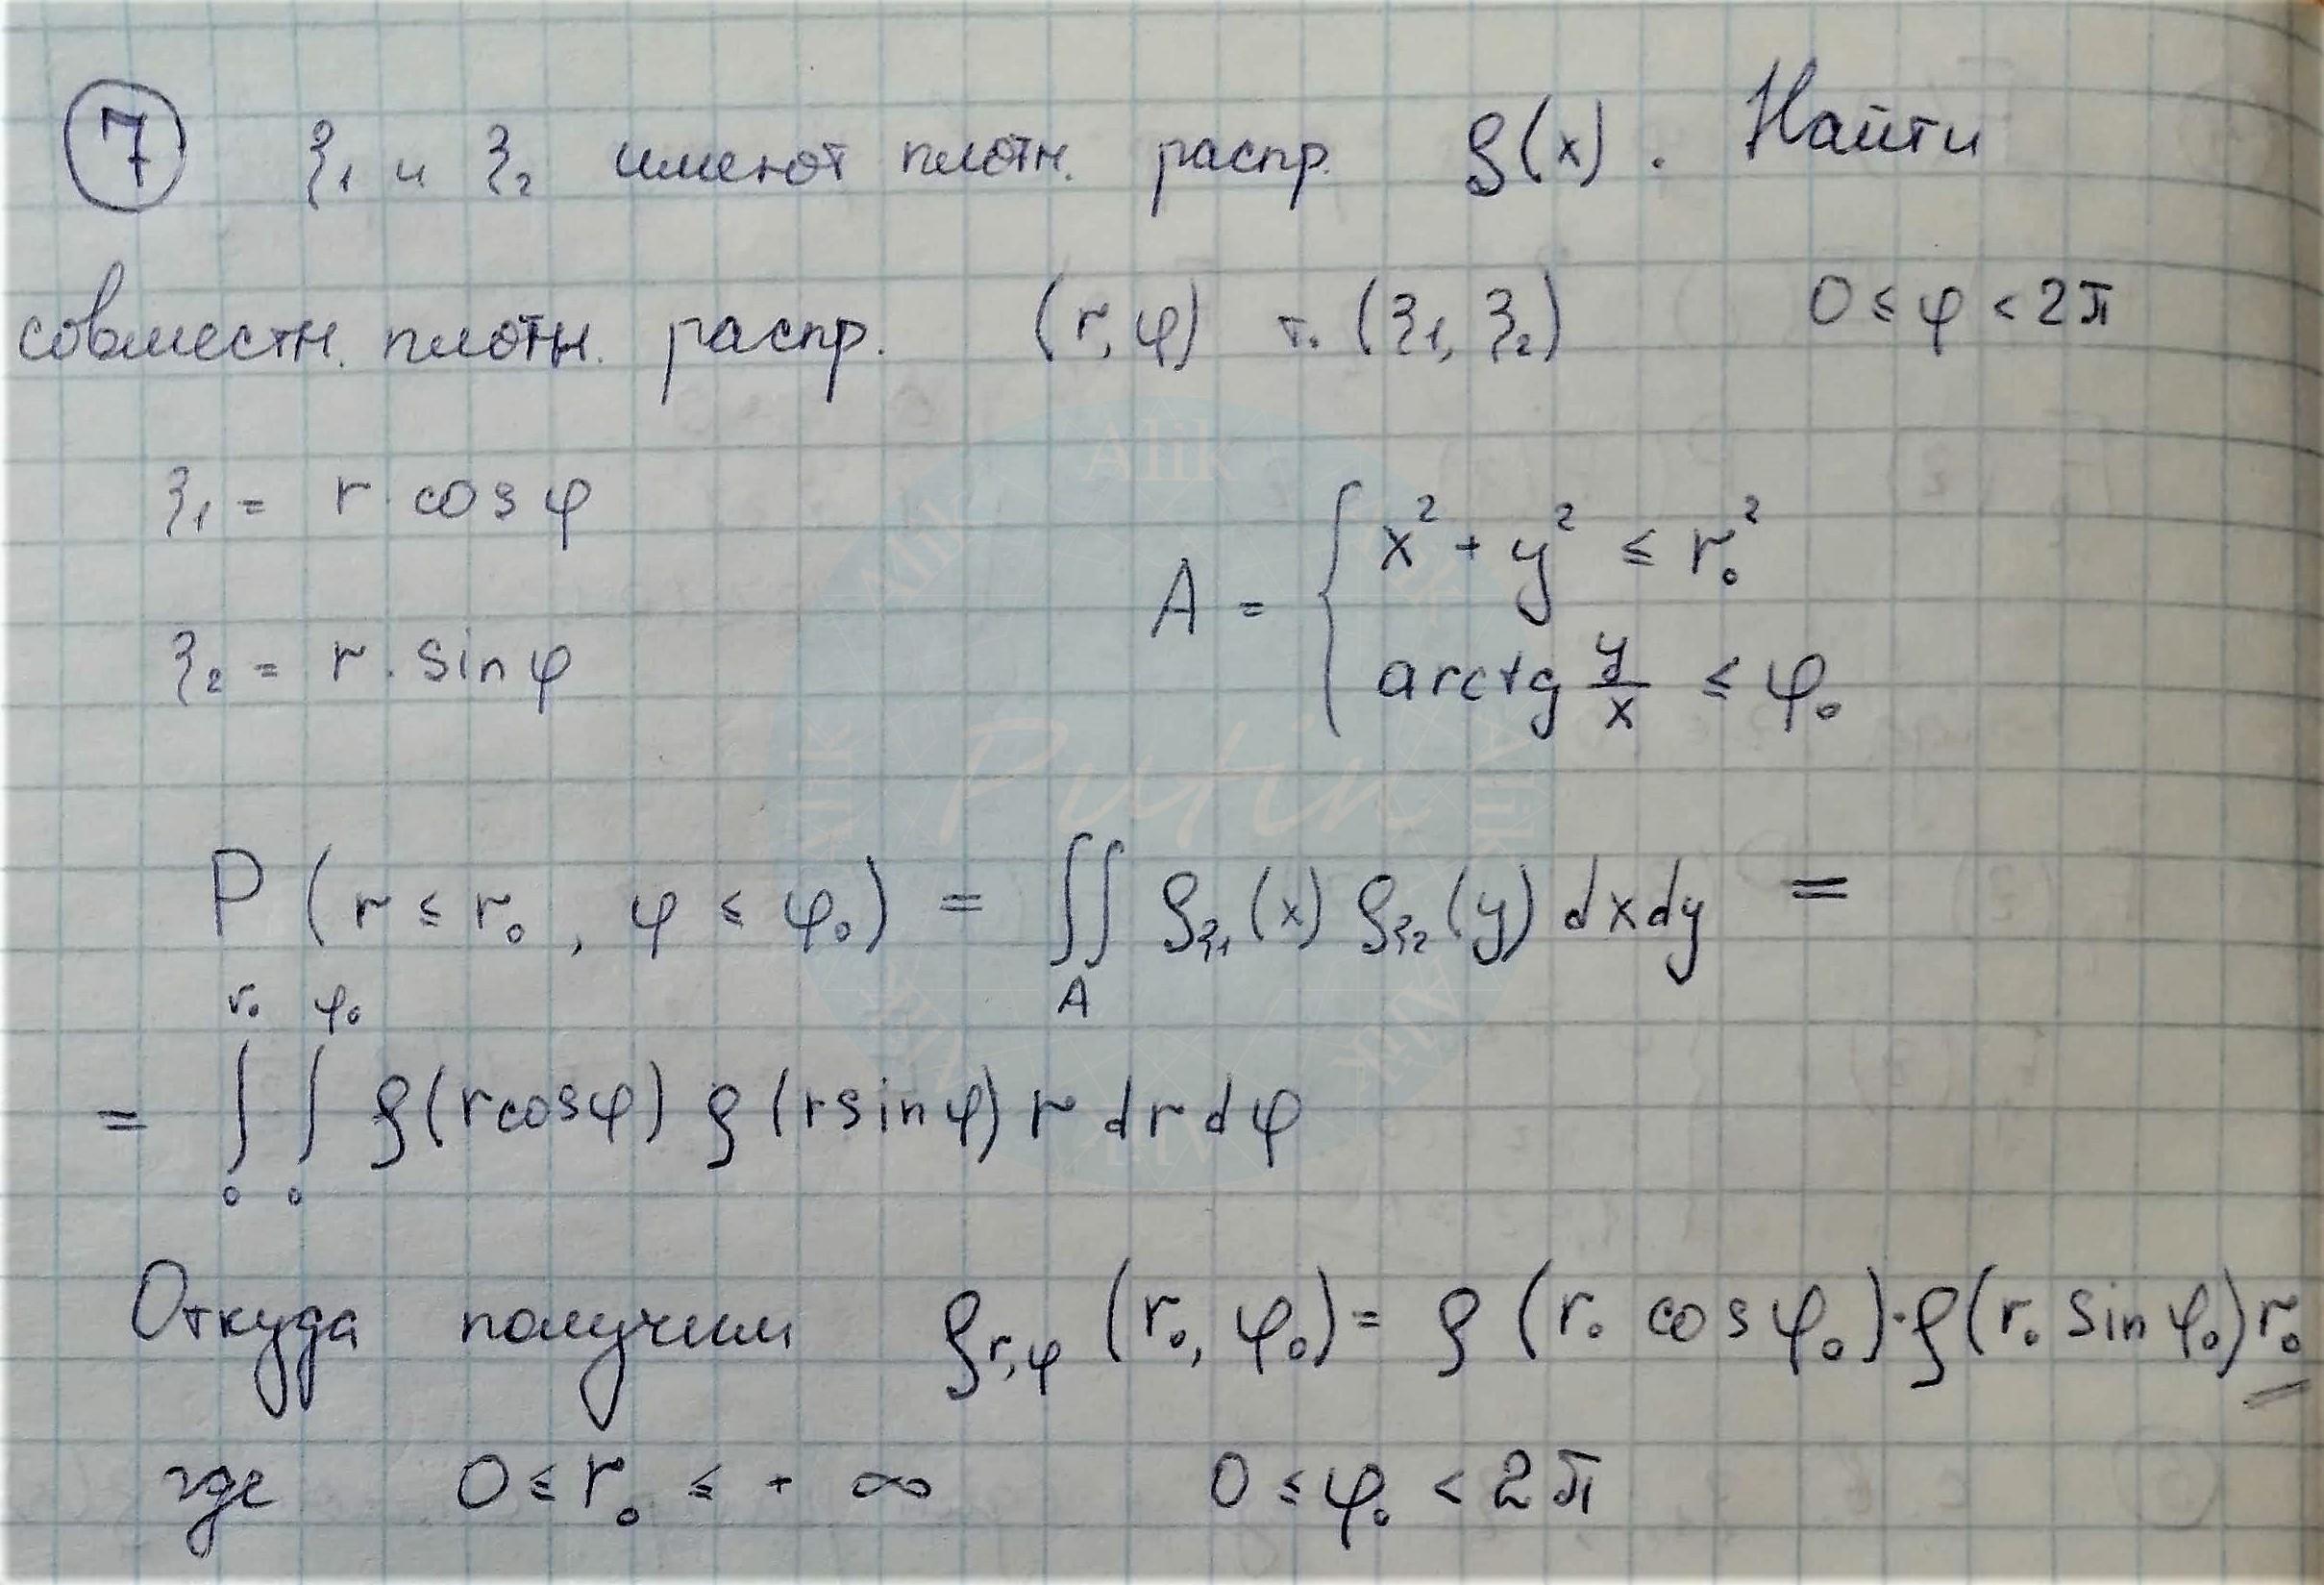 7 ξ₁ и ξ₂ имеют плотн. распр. ρ(x). Найти
совместн. плотн. распр. (r, φ) т. (ξ₁, ξ₂) 0 ≤ φ < 2π
ξ₁ = r · cos φ
ξ₂ = r · sin φ
A = { x² + y² ≤ r₀²
arctg y/x ≤ φ₀
P (r ≤ r₀, φ ≤ φ₀) = ∬_A ρ_ξ₁(x) ρ_ξ₂(y) dx dy =
= ∫₀^r₀ ∫₀^φ₀ ρ(r cos φ) ρ(r sin φ) r dr dφ
Откуда получим ρ_r,φ (r₀, φ₀) = ρ (r₀ cos φ₀) · ρ(r₀ sin φ₀) r₀
где 0 ≤ r₀ ≤ + ∞ 0 ≤ φ₀ < 2π
Alik
Alik
Alik
Alik
Alik
Alik
Alik
Alik
Putin